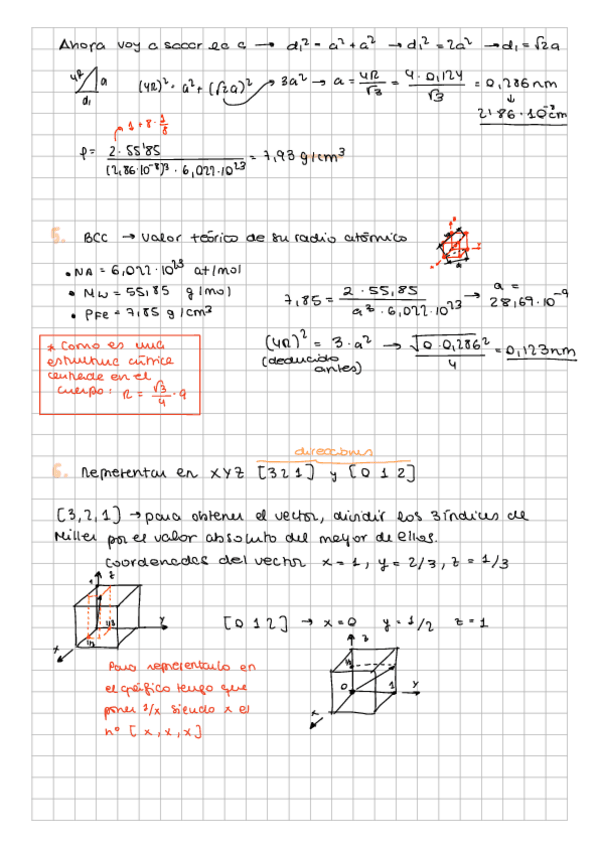 Ahora voy a sacar la a → d₁² = a² + a² → d₁² = 2a² → d₁ = √2a
4R a d₁ (4R)² = a² + (√2a)² → 3a² → a = 4R/√3 = 4 · 0,124/√3 = 0,286 nm
↓
2'86 · 10⁻⁸ cm
1 + 8 · 1/8
ρ = 2 · 55'85/(2,86·10⁻⁸)³ · 6,022·10²³ = 7,93 g/cm³
5. BCC → valor teórico de su radio atómico
• NA = 6,022 · 10²³ at/mol
• MW = 55,85 g/mol
• ρFE = 7,85 g/cm³
7,85 = 2 · 55,85/a³ · 6,022·10²³ → a = 28,69·10⁻⁹
(4R)² = 3 · a² → √0 · 0,286²/4 = 0,123 nm
(deducido antes)
* Como es una
estructura cúbica
centrada en el
cuerpo: R = √3/4 · a
direcciones
6. Representar en XYZ [3 2 1] y [0 1 2]
[3, 2, 1] → para obtener el vector, dividir los 3 índices de
Miller por el valor absoluto del mayor de ellos.
coordenadas del vector x = 1, y = 2/3, z = 1/3
z
y
x
[0 1 2] → x = 0 y = 1/2 z = 1
Para representarlo en
el gráfico tengo que
poner 1/x siendo x el
nº [x, x, x]
z
0 1 y
x